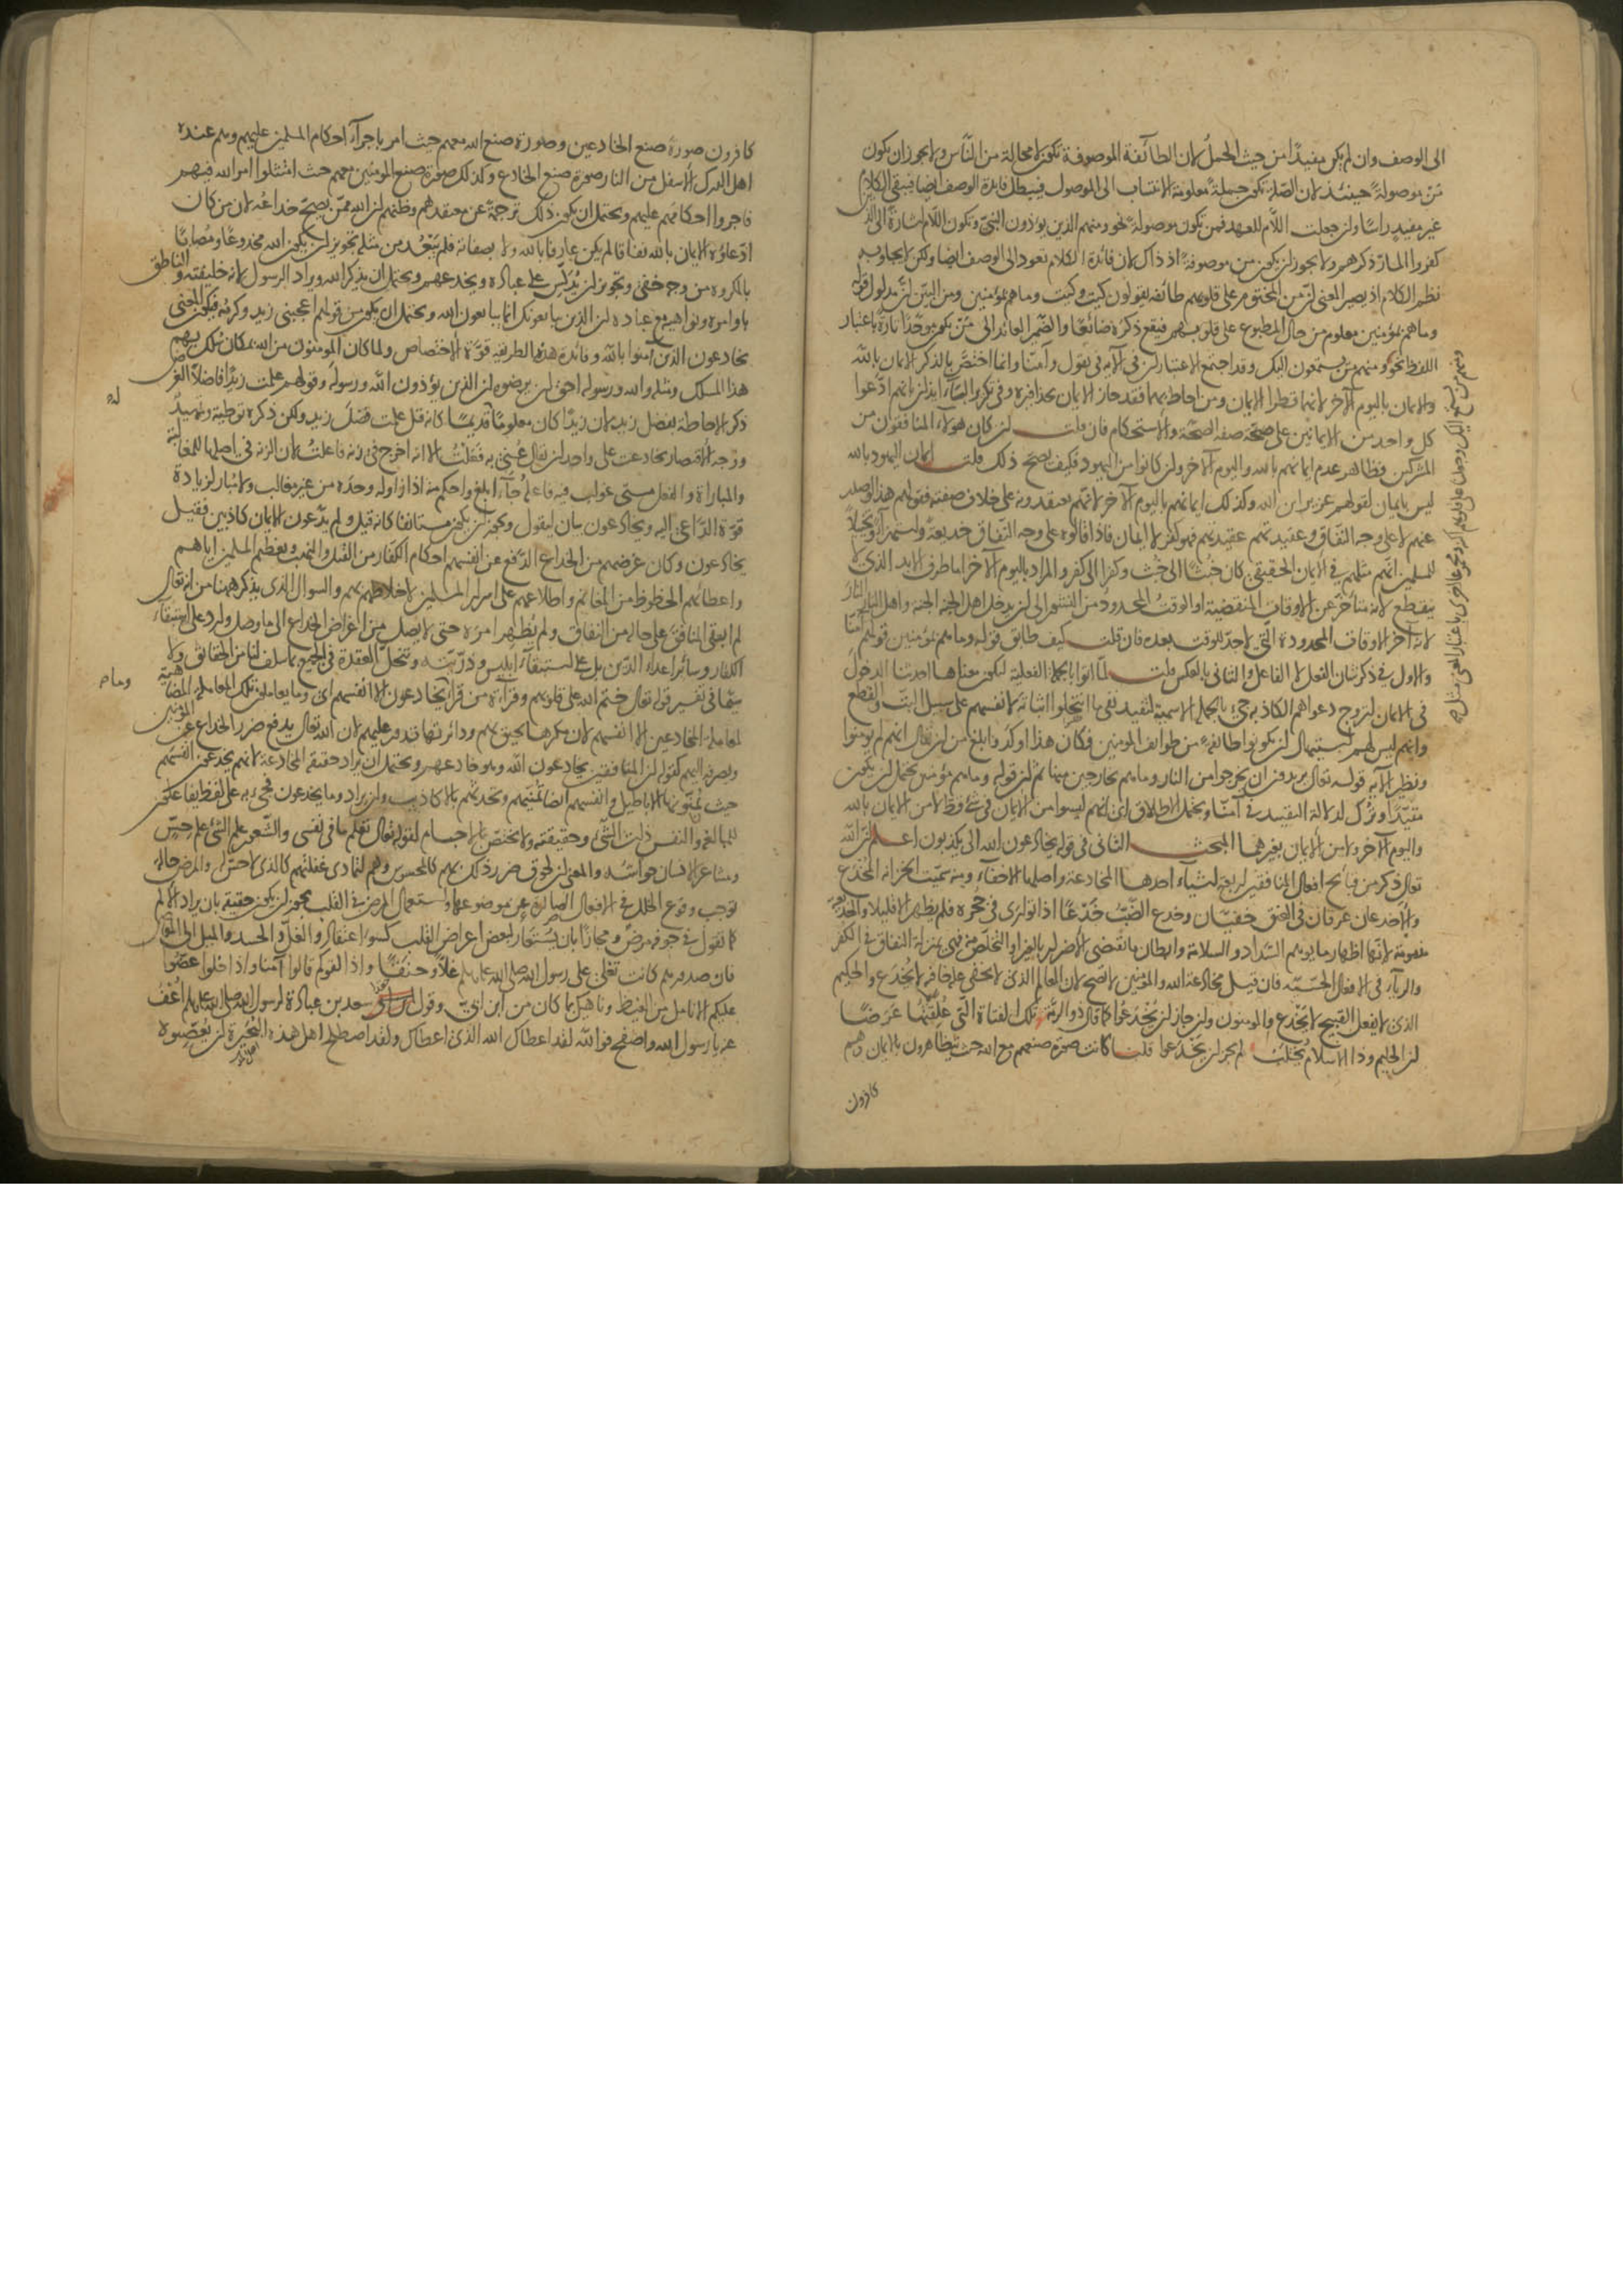 الى الوصف وان لم يكن مفيدًا من حيث الحمل لان الطائفة الموصوفة تكون لا محالة من الناس ولا يجوز ان يكون
من موصولة حينئذ لان الصلة تكون جملة معلومة الانتساب الى الموصول فيبطل فايدة الوصف ايضا فيبقى الكلام
غير مفيد راسًا وان جعلت اللام للعهد فمن تكون موصولة نحو ومنهم الذين يؤذون النبي وتكون اللام اشارة الى الذين
كفروا المار ذكرهم ولا يجوز ان يكون من موصوفة اذ ذاك لان فائدة الكلام تعود الى الوصف ايضا ولكن لا يتجاوب
نظم الكلام اذ يصير المعنى ان من المختوم على قلوبهم طائفة يقولون كيت وكيت وما هم بمؤمنين ومن البين ان مدلول قوله
وما هم بمؤمنين معلوم من حال المطبوع على قلوبهم فيقع ذكره ضائعًا والضمير العائد الى من يكون موحدًا تارة باعتبار
اللفظ نحو ومنهم من يستمعون اليك وقد اجتمع الاعتباران في الآية في يقول وآمنا وانما اختص بالذكر الايمان بالله
والايمان باليوم الآخر لانهما قطرا الايمان ومن احاط بهما فقد حاز الايمان بحذافيره وفي تكرير الباء ايذان بانهم ادعوا
كل واحد من الايمانين على صحة صفة الصحة والاستحكام فان قلت ان كان هولاء المنافقون من
المشركين فظاهر عدم ايمانهم بالله واليوم الآخر وان كانوا من اليهود فكيف يصح ذلك قلت ايمان اليهود بالله
ليس بايمان لقولهم عزير ابن الله وكذلك ايمانهم باليوم الآخر لانهم يعتقدونه على خلاف صفته فقولهم هذا لو صدر
عنهم لا على وجه النفاق وعقيدتهم عقيدتهم فهو كفر لا ايمان فاذا قالوه على وجه النفاق خديعة واستهزاء وتخييلا
للمسلمين انهم مثلهم في الايمان الحقيقي كان خبثًا الى خبث وكفرا الى كفر والمراد باليوم الآخر اما طرف الابد الذي لا
ينقطع لانه متأخر عن الاوقات المنقضية او الوقت المحدود من النشور الى ان يدخل اهل الجنة الجنة واهل النار النار
لانه آخر الاوقات المحدودة التي لا حد للوقت بعده فان قلت كيف طابق قوله وما هم بمؤمنين قولهم آمنا
والاول في ذكر شان الفعل لا الفاعل والثاني بالعكس قلت لما اتوا بالجملة الفعلية ليكون معناها احدثنا الدخول
في الايمان لتروج دعواهم الكاذبة جيء بالجملة الاسمية لتفيد نفي ما انتحلوا اثباته لانفسهم على سبيل البت والقطع
وانهم ليس لهم استيهال ان يكونوا طائفة من طوائف المومنين فكان هذا اوكد وابلغ من ان يقال انهم لم يومنوا
ونظير الآية قوله تعالى يريدون ان يخرجوا من النار وما هم بخارجين منها ثم ان قوله وما هم بمؤمنين يحتمل ان يكون
مقيدًا وترك لدلالة التقييد في آمنا ويحتمل الاطلاق اي انهم ليسوا من الايمان في شيء قط لا من الايمان بالله
واليوم الآخر ولا من الايمان بغيرهما المبحث الثاني في قوله يخادعون الله الى يكذبون اعلم ان الله
تعالى ذكر من قبائح افعال المنافقين اربعة اشياء احدها المخادعة واصلها الاخفاء ومنه سميت الخزانة المخدع
والاخدعان عرقان في العنق خفيان وخدع الضب خدعًا اذا توارى في جحره فلم يظهر الا قليلا والخديعة
مذمومة لانها اظهار ما يوهم السداد والسلامة وابطان ما يقتضي الاضرار بالغير او التخلص منه فهي بمنزلة النفاق في الكفر
والرياء في الافعال الحسنة فان قيل مخادعة الله والمؤمنين لا تصح لان العالم الذي لا تخفى عليه خافية لا يُخدع والحكيم
الذي لا يفعل القبيح لا يَخدع والمومنون وان جاز ان يُخدعوا كما قال ذو الرمة تلك الفتاة التي علقتها عرضًا
ان الحليم وذا الاسلام يختلب لم يجز ان يخدعوا قلنا كانت صورة صنعهم مع الله حيث يتظاهرون بالايمان وهم
كافرون
ومنهم من يستمع اليك وجعلنا على قلوبهم اكنة ومجموعًا اخرى باعتبار المعنى مثل
كافرون صورة صنع الخادعين وصورة صنع الله معهم حيث امر باجراء احكام المسلمين عليهم وهم عنده
اهل الدرك الاسفل من النار صورة صنع الخادع وكذلك صورة صنع المومنين معهم حيث امتثلوا امر الله فيهم
فاجروا احكامهم عليهم ويحتمل ان يكون ذلك ترجمة عن معتقدهم وظنهم ان الله ممن يصح خداعه لان من كان
ادعاؤه الايمان بالله نفاقا لم يكن عارفا بالله ولا بصفاته فلم يبعد من مثله تجويز ان يكون الله مخدوعًا ومصابًا
بالمكروه من وجه خفي وتجويز ان يدلس على عباده ويخدعهم ويحتمل ان يذكر الله ويراد الرسول لانه خليفته والناطق
باوامره ونواهيه مع عباده ان الذين يبايعونك انما يبايعون الله ويحتمل ان يكون من قولهم اعجبني زيد وكرمه فيكون المعنى
يخادعون الذين آمنوا بالله وفائدة هذه الطريقة قوة الاختصاص ولما كان المومنون من الله بمكان سلك بهم
هذا المسلك ومثله والله ورسوله احق ان يرضوه ان الذين يؤذون الله ورسوله وقولهم علمت زيدًا فاضلا الغرض
ذكر الاحاطة بفضل زيد لان زيدًا كان معلومًا قديمًا كانه قيل علمت فضل زيد ولكن ذكره توطية وتمهيد
ووجه الاقتصار بخادعت على واحد ان يقال عني به فعلت الا انه اخرج في زنة فاعلت لان الزنة في اصلها للمغالبة
والمباراة والفعل متى غولب فيه فاعله جاء ابلغ واحكم منه اذا زاوله وحده من غير مغالب ولا مبار لزيادة
قوة الداعي اليه ويخادعون بيان ليقول ويجوز ان يكون مستانفا كانه قيل ولم يدعون الايمان كاذبين فقيل
يخادعون وكان غرضهم من الخداع الدفع عن انفسهم احكام الكفار من القتل والنهب وتعظيم المسلمين اياهم
واعطائهم الحظوظ من المغانم واطلاعهم على اسرار المسلمين لاختلاطهم بهم والسوال الذي يذكر ههنا من انه تعالى
لم ابقى المنافق على حاله من النفاق ولم يظهر امره حتى لا يصل من اغراض الخداع الى ما وصل وارد على استبقاء
الكفار وسائر اعداء الدين بل على استبقاء ابليس وذريته وتنحل العقدة في الجميع بما سلف لنا من الحقائق ولا
سيما في تفسير قوله تعالى ختم الله على قلوبهم وقراءة من قرأ يخادعون الا انفسهم اي وما يعاملون تلك المعاملة المضاهية
لمعاملة المخادعين الا انفسهم لان مكرها يحيق بهم ودائرتها تدور عليهم لان الله تعالى يدفع ضرر الخداع عن المؤمنين
ويصرفه اليهم كقوله ان المنافقين يخادعون الله وهو خادعهم ويحتمل ان يراد حقيقة المخادعة لانهم يخدعون انفسهم
حيث يمنونها الاباطيل وانفسهم ايضا تمنيهم وتحدثهم بالاكاذيب وان يراد وما يخدعون فجيء به على لفظ يفاعلون
للمبالغة والنفس ذات الشيء وحقيقته ولا تختص بالاجسام لقوله تعالى تعلم ما في نفسي والشعور علم الشيء علم حس
ومشاعر الانسان حواسه والمعنى ان لحوق ضرر ذلك بهم كالمحسوس وهم لتمادي غفلتهم كالذي لا حس له والمرض حالة
توجب وقوع الخلل في الافعال الصادرة عن موضوعها واستعمال المرض في القلب يجوز ان يكون حقيقة بان يراد الالم
كما تقول في جوفه مرض ومجازًا بان يستعار لبعض اعراض القلب كسوء اعتقاد والغل والحسد والميل الى المعاصي
فان صدورهم كانت تغلي على رسول الله صلى الله عليه وسلم غلا وحنقًا واذا لقوكم قالوا آمنا واذا خلوا عضوا
عليكم الانامل من الغيظ وناهيك بما كان من ابن ابي وقول سعد بن عبادة لرسول الله صلى الله عليه وسلم اعف
عنه يا رسول الله واصفح فوالله لقد اعطاك الله الذي اعطاك ولقد اصطلح اهل هذه البحيرة ان يعصبوه
له
وما هم